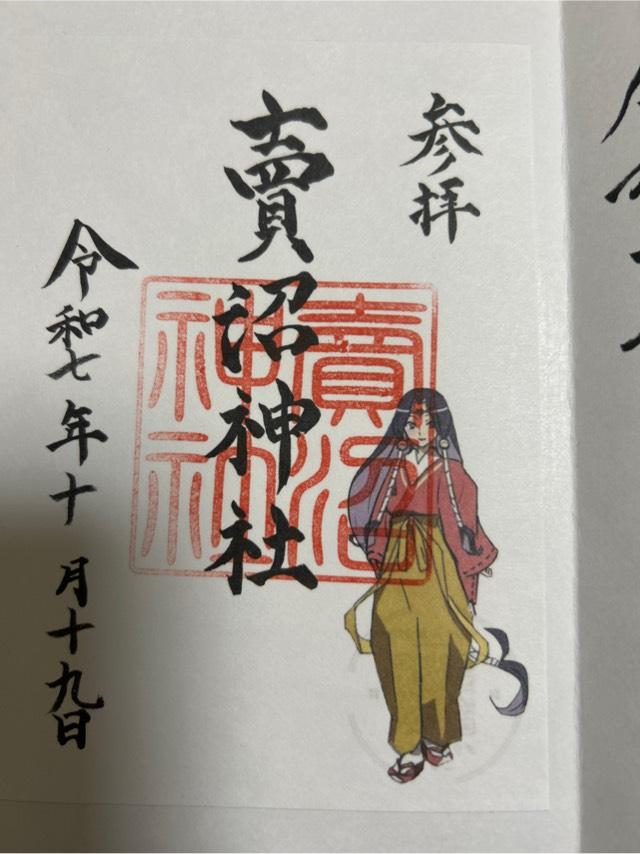 参拝
賣沼神社
賣沼
神社
令和七年十月十九日